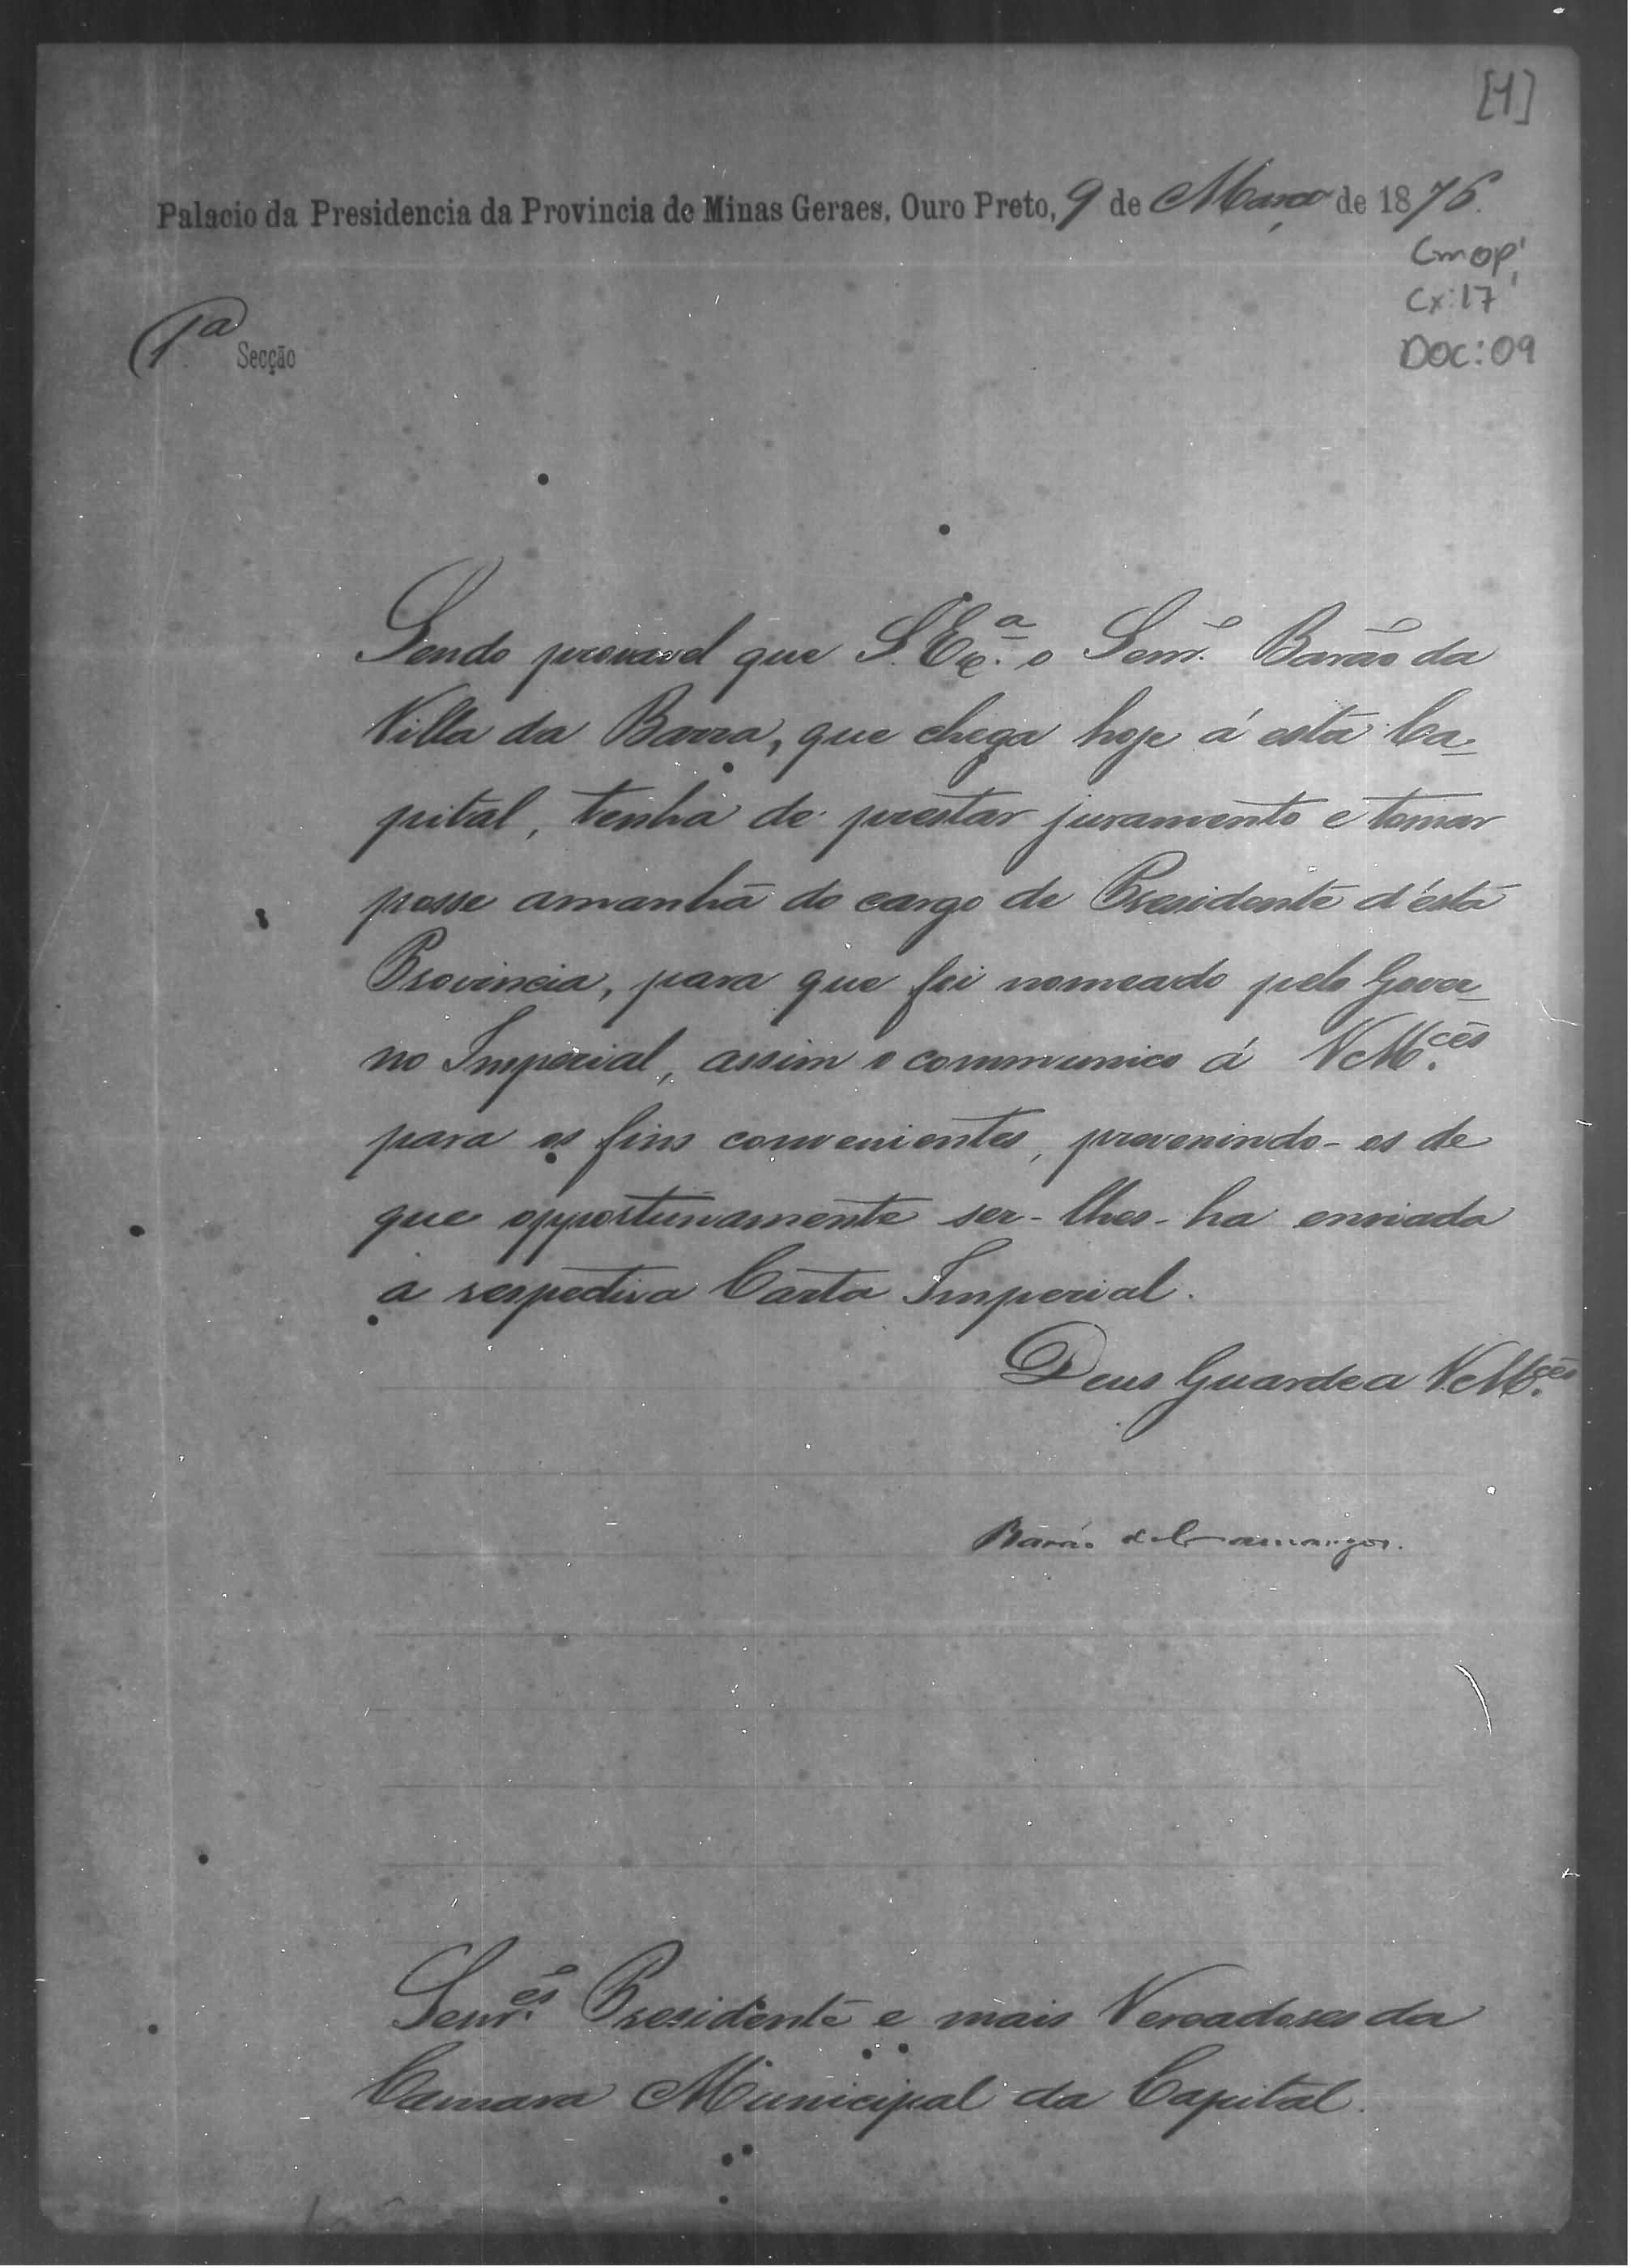 [1]
Palacio da Presidencia da Provincia de Minas Geraes, Ouro Preto, 9 de Março de 1876.
CMOP,
Cx: 17
DOC: 09
1ª Secção
Sendo provavel que S. Exª. o Senr. Barão da
Villa da Barra, que chega hoje á esta Ca-
pital, tenha de prestar juramento e tomar
posse amanhã do cargo de Presidente d'esta
Provincia, para que foi nomeado pelo Gover-
no Imperial, assim o communico á VcMces.
para os fins convenientes, prevenindo-os de
que opportunamente ser-lhes-ha enviada
a respectiva Carta Imperial.
Deus Guarde a VcMces.
Barão de Camargos.
Senres. Presidente e mais Vereadores da
Camara Municipal da Capital.